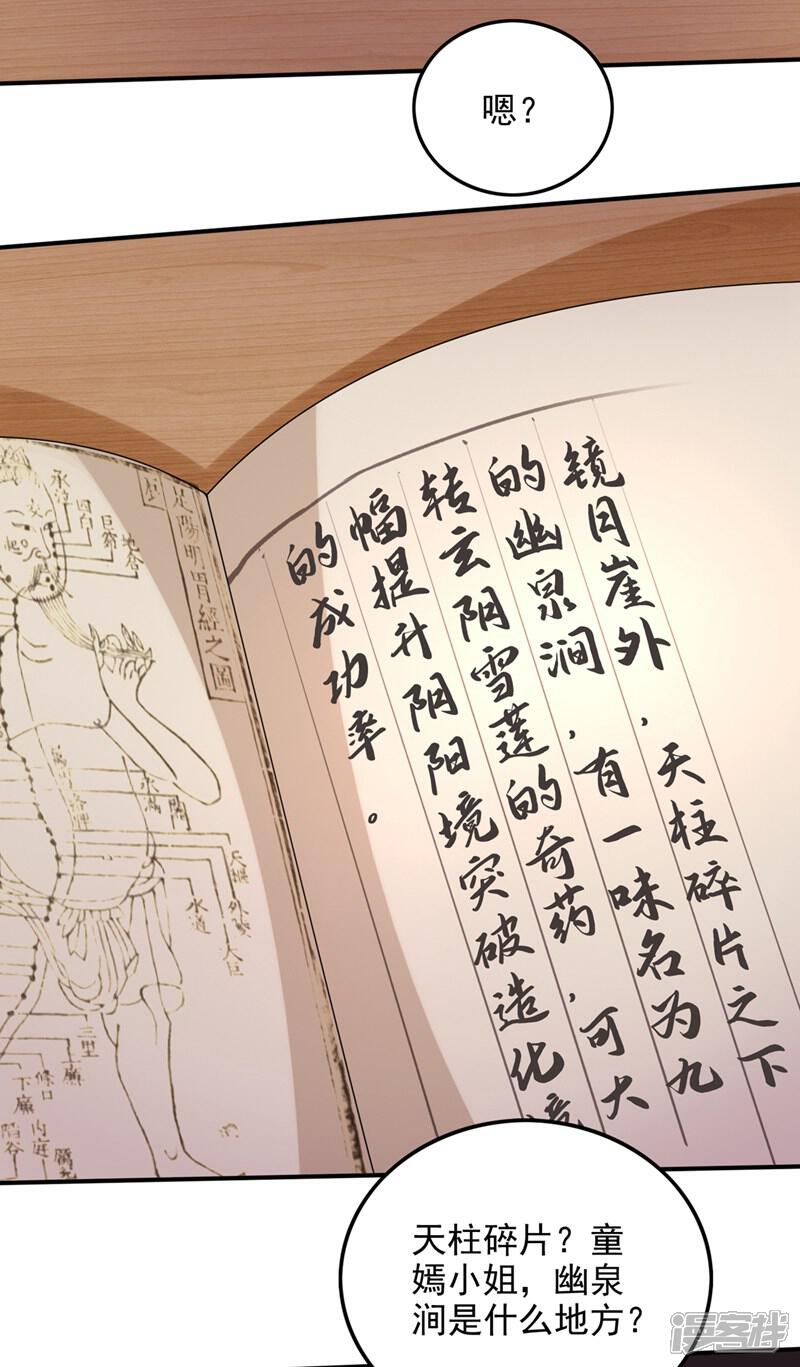 嗯？
镜月崖外，天柱碎片之下
的幽泉涧，有一味名为九
转玄阴雪莲的奇药，可大
幅提升阴阳境突破造化境
的成功率。
足陽明胃經之圖
承泣
四白
巨窌
地仓
水道
外陵
大巨
條口
下廉
内庭
陷谷
天柱碎片？童
嫣小姐，幽泉
涧是什么地方？
漫客栈